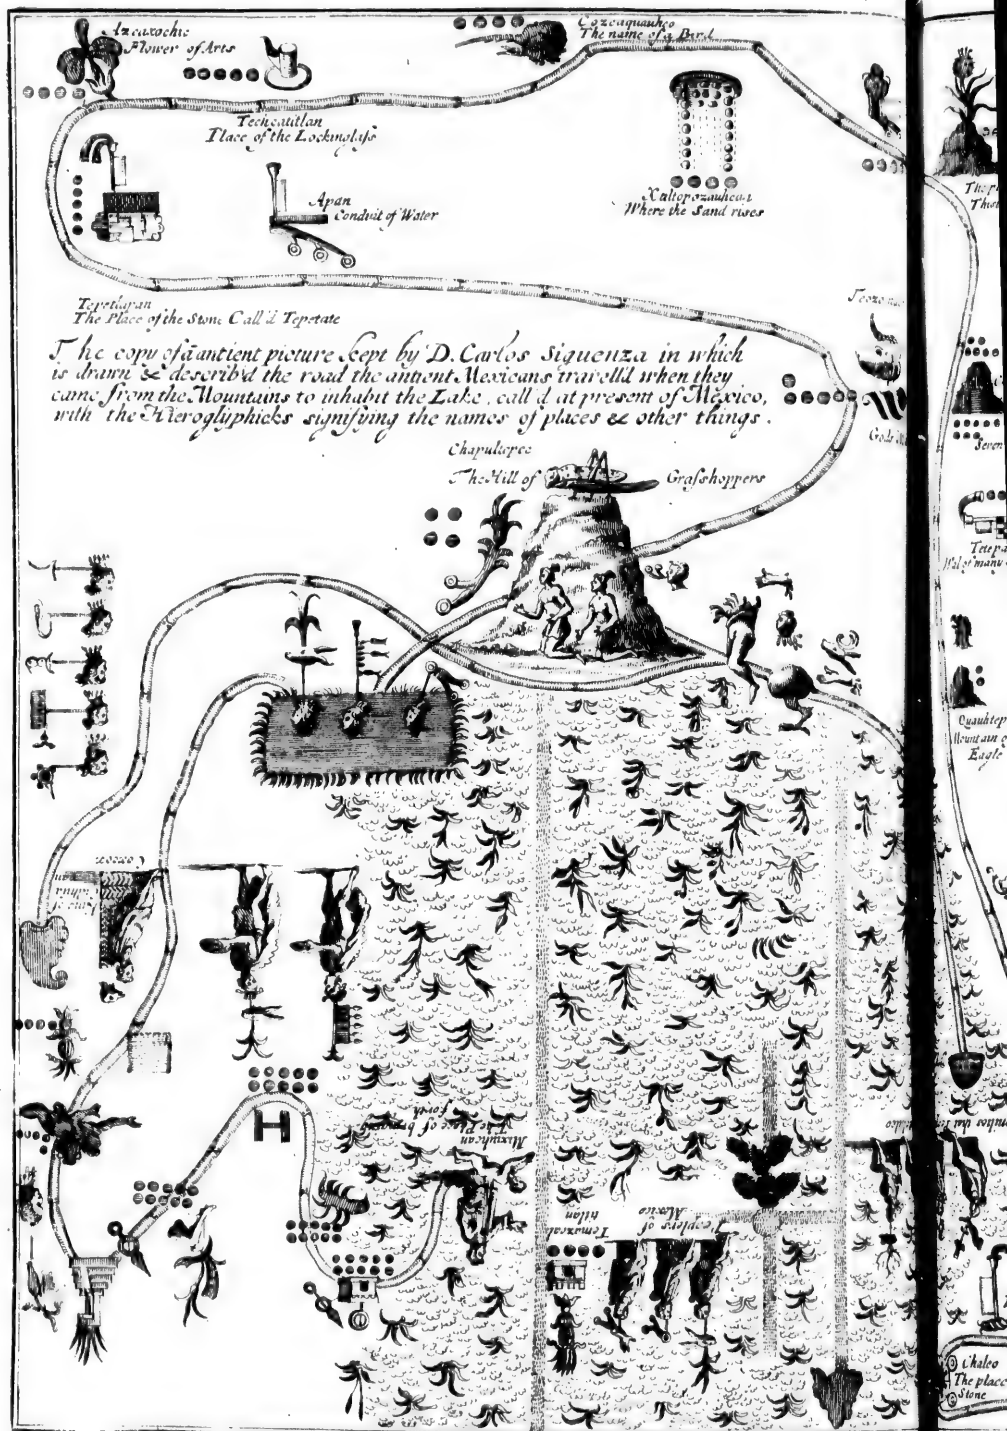 Azcaxochic
Flower of Arts
Cozcaquauhco
The name of a Bird
Techcatitlan
Place of the Lookinglass
Apan
Conduit of Water
Xaltopozauhcan
Where the Sand rises
Tepetlapan
The Place of the Stone Call'd Tepetate
The copy of a antient picture kept by D. Carlos Siguenza in which
is drawn & describ'd the road the antient Mexicans travell'd when they
came from the Mountains to inhabit the Lake, call'd at present of Mexico,
with the Hieroglyphicks signifying the names of places & other things.
Chapultepec
The Hill of Grasshoppers
Seven
Mountain
Eagle
Mixiuhcan
The Place of bringing
forth
Peoplers of
Mexico
Chalco
The place
Stone